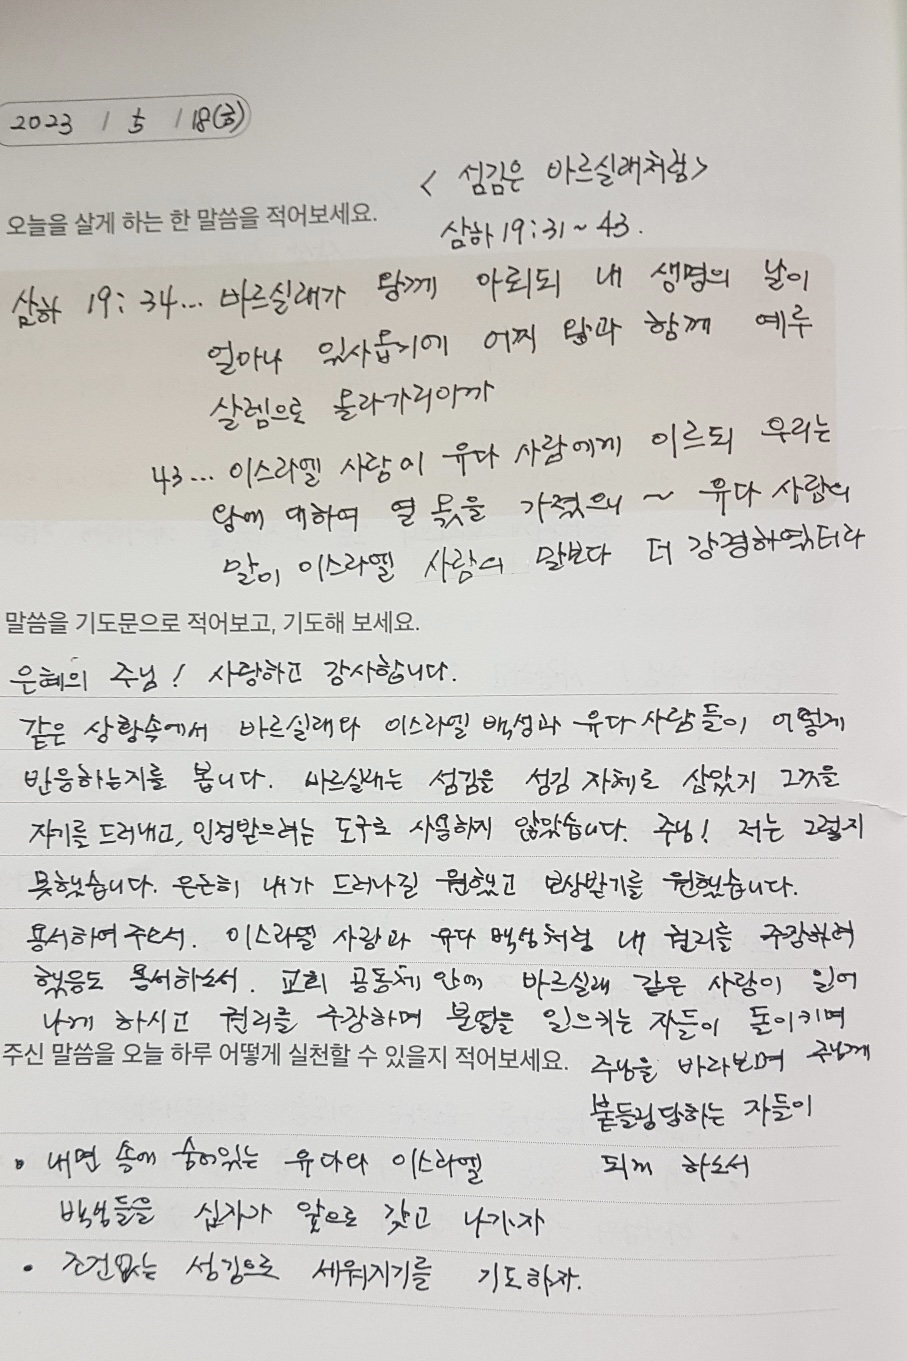 2023 / 5 / 18(금)
< 섬김은 바르실래처럼>
오늘을 살게 하는 한 말씀을 적어보세요.
삼하 19:31~43.
삼하 19:34... 바르실래가 왕께 아뢰되 내 생명의 날이
얼마나 있사옵기에 어찌 왕과 함께 예루
살렘으로 올라가리이까
43... 이스라엘 사람이 유다 사람에게 이르되 우리는
왕에 대하여 열 몫을 가졌으니 ~ 유다 사람의
말이 이스라엘 사람의 말보다 더 강경하였더라
말씀을 기도문으로 적어보고, 기도해 보세요.
은혜의 주님! 사랑하고 감사합니다.
같은 상황속에서 바르실래와 이스라엘 백성과 유다 사람들이 어떻게
반응하는지를 봅니다. 바르실래는 섬김을 섬김 자체로 삼았지 그것을
자기를 드러내고, 인정받으려는 도구로 사용하지 않았습니다. 주님! 저는 그렇지
못했습니다. 은근히 내가 드러나길 원했고 보상받기를 원했습니다.
용서하여 주소서. 이스라엘 사람과 유다 백성처럼 내 권리를 주장하려
했음도 용서하소서. 교회 공동체 안에 바르실래 같은 사람이 일어
나게 하시고 권리를 주장하며 분열을 일으키는 자들이 돌이키며
주님을 바라보며 주님께
붙들림당하는 자들이
되게 하소서
주신 말씀을 오늘 하루 어떻게 실천할 수 있을지 적어보세요.
• 내면 속에 숨어있는 유다와 이스라엘
백성들을 십자가 앞으로 갖고 나가자
• 조건없는 섬김으로 세워지기를 기도하자.